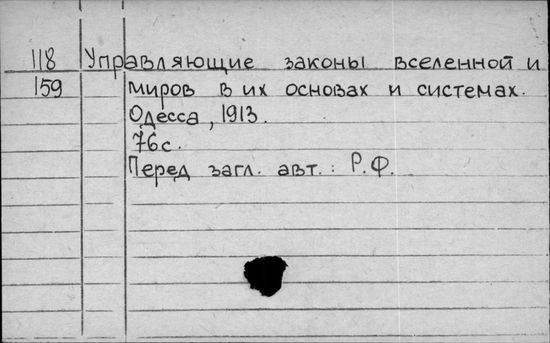 118 Управляющие законы вселенной и
159 миров в их основах и системах.
Одесса, 1913.
76с.
Перед загл. авт.: Р.Ф.